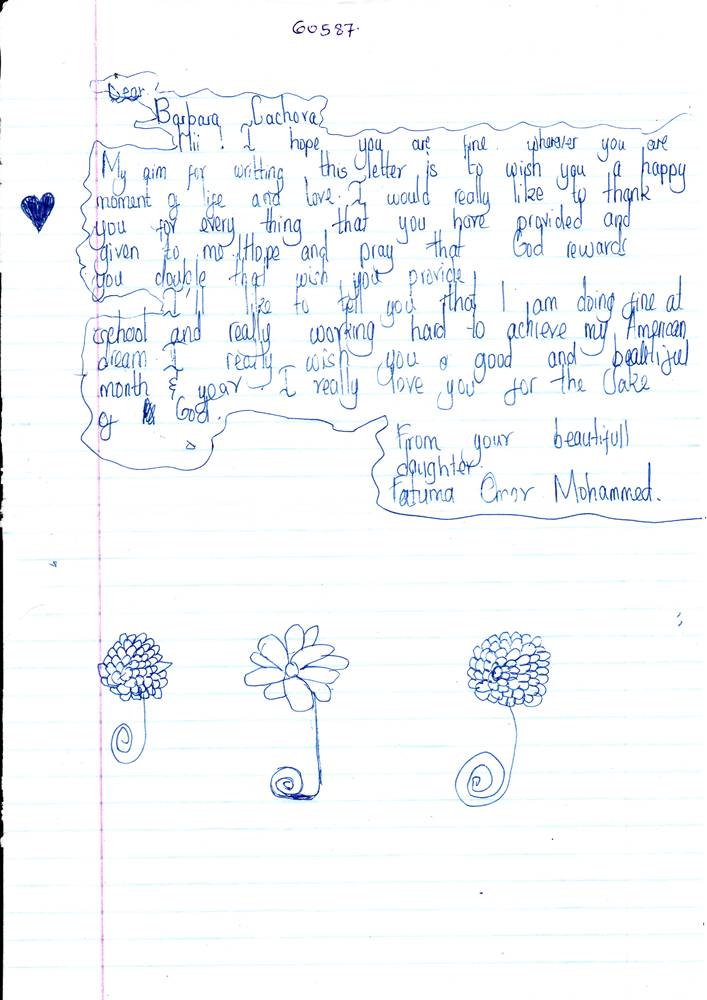 60587.
Dear.
Barbara Cachova
Hii ! I hope you are fine wherever you are
My aim for writting this letter is to wish you a happy
moment of life and love. I would really like to thank
you for every thing that you have provided and
given to me. Hope and pray that God rewards
you double that wish you provide.
I'll like to tell you that I am doing fine at
school and really working hard to achieve my American
dream. I really wish you a good and beautiful
month & year. I really love you for the sake
of God.
From your beautifull
daughter.
Fatuma Omar Mohammed.